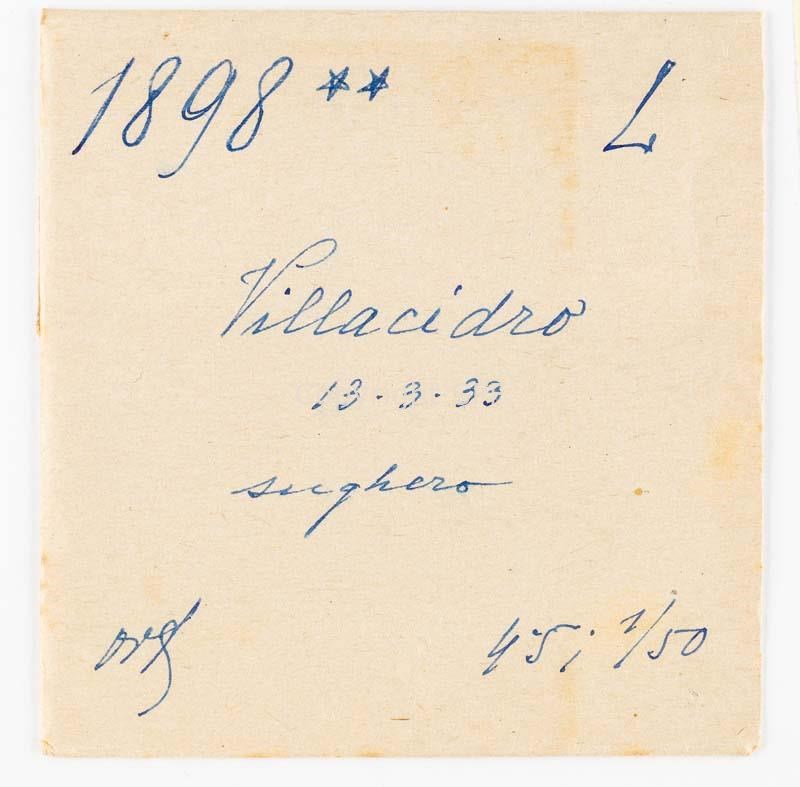 1898 ** L
Villacidro
13.3.33
sughero
45; 1/50